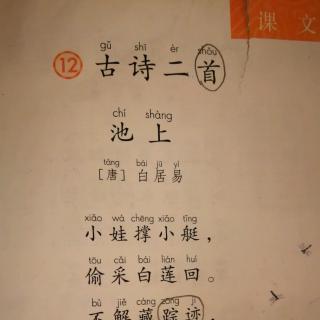 课文
gǔ shī èr shǒu
12 古诗二首
chí shàng
池上
táng bái jū yì
[唐] 白居易
xiǎo wá chēng xiǎo tǐng
小娃撑小艇，
tōu cǎi bái lián huí
偷采白莲回。
bù jiě cáng zōng jì
不解藏踪迹，